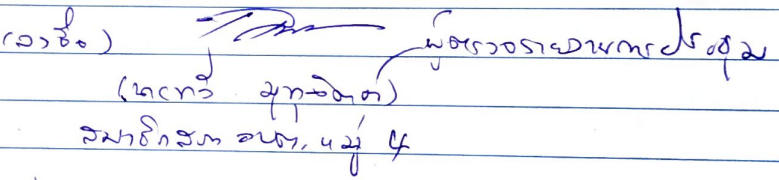 (ลงชื่อ) ผู้ตรวจรายงานการประชุม
(นายทวี
สมาชิกสภา อบต. หมู่ 4